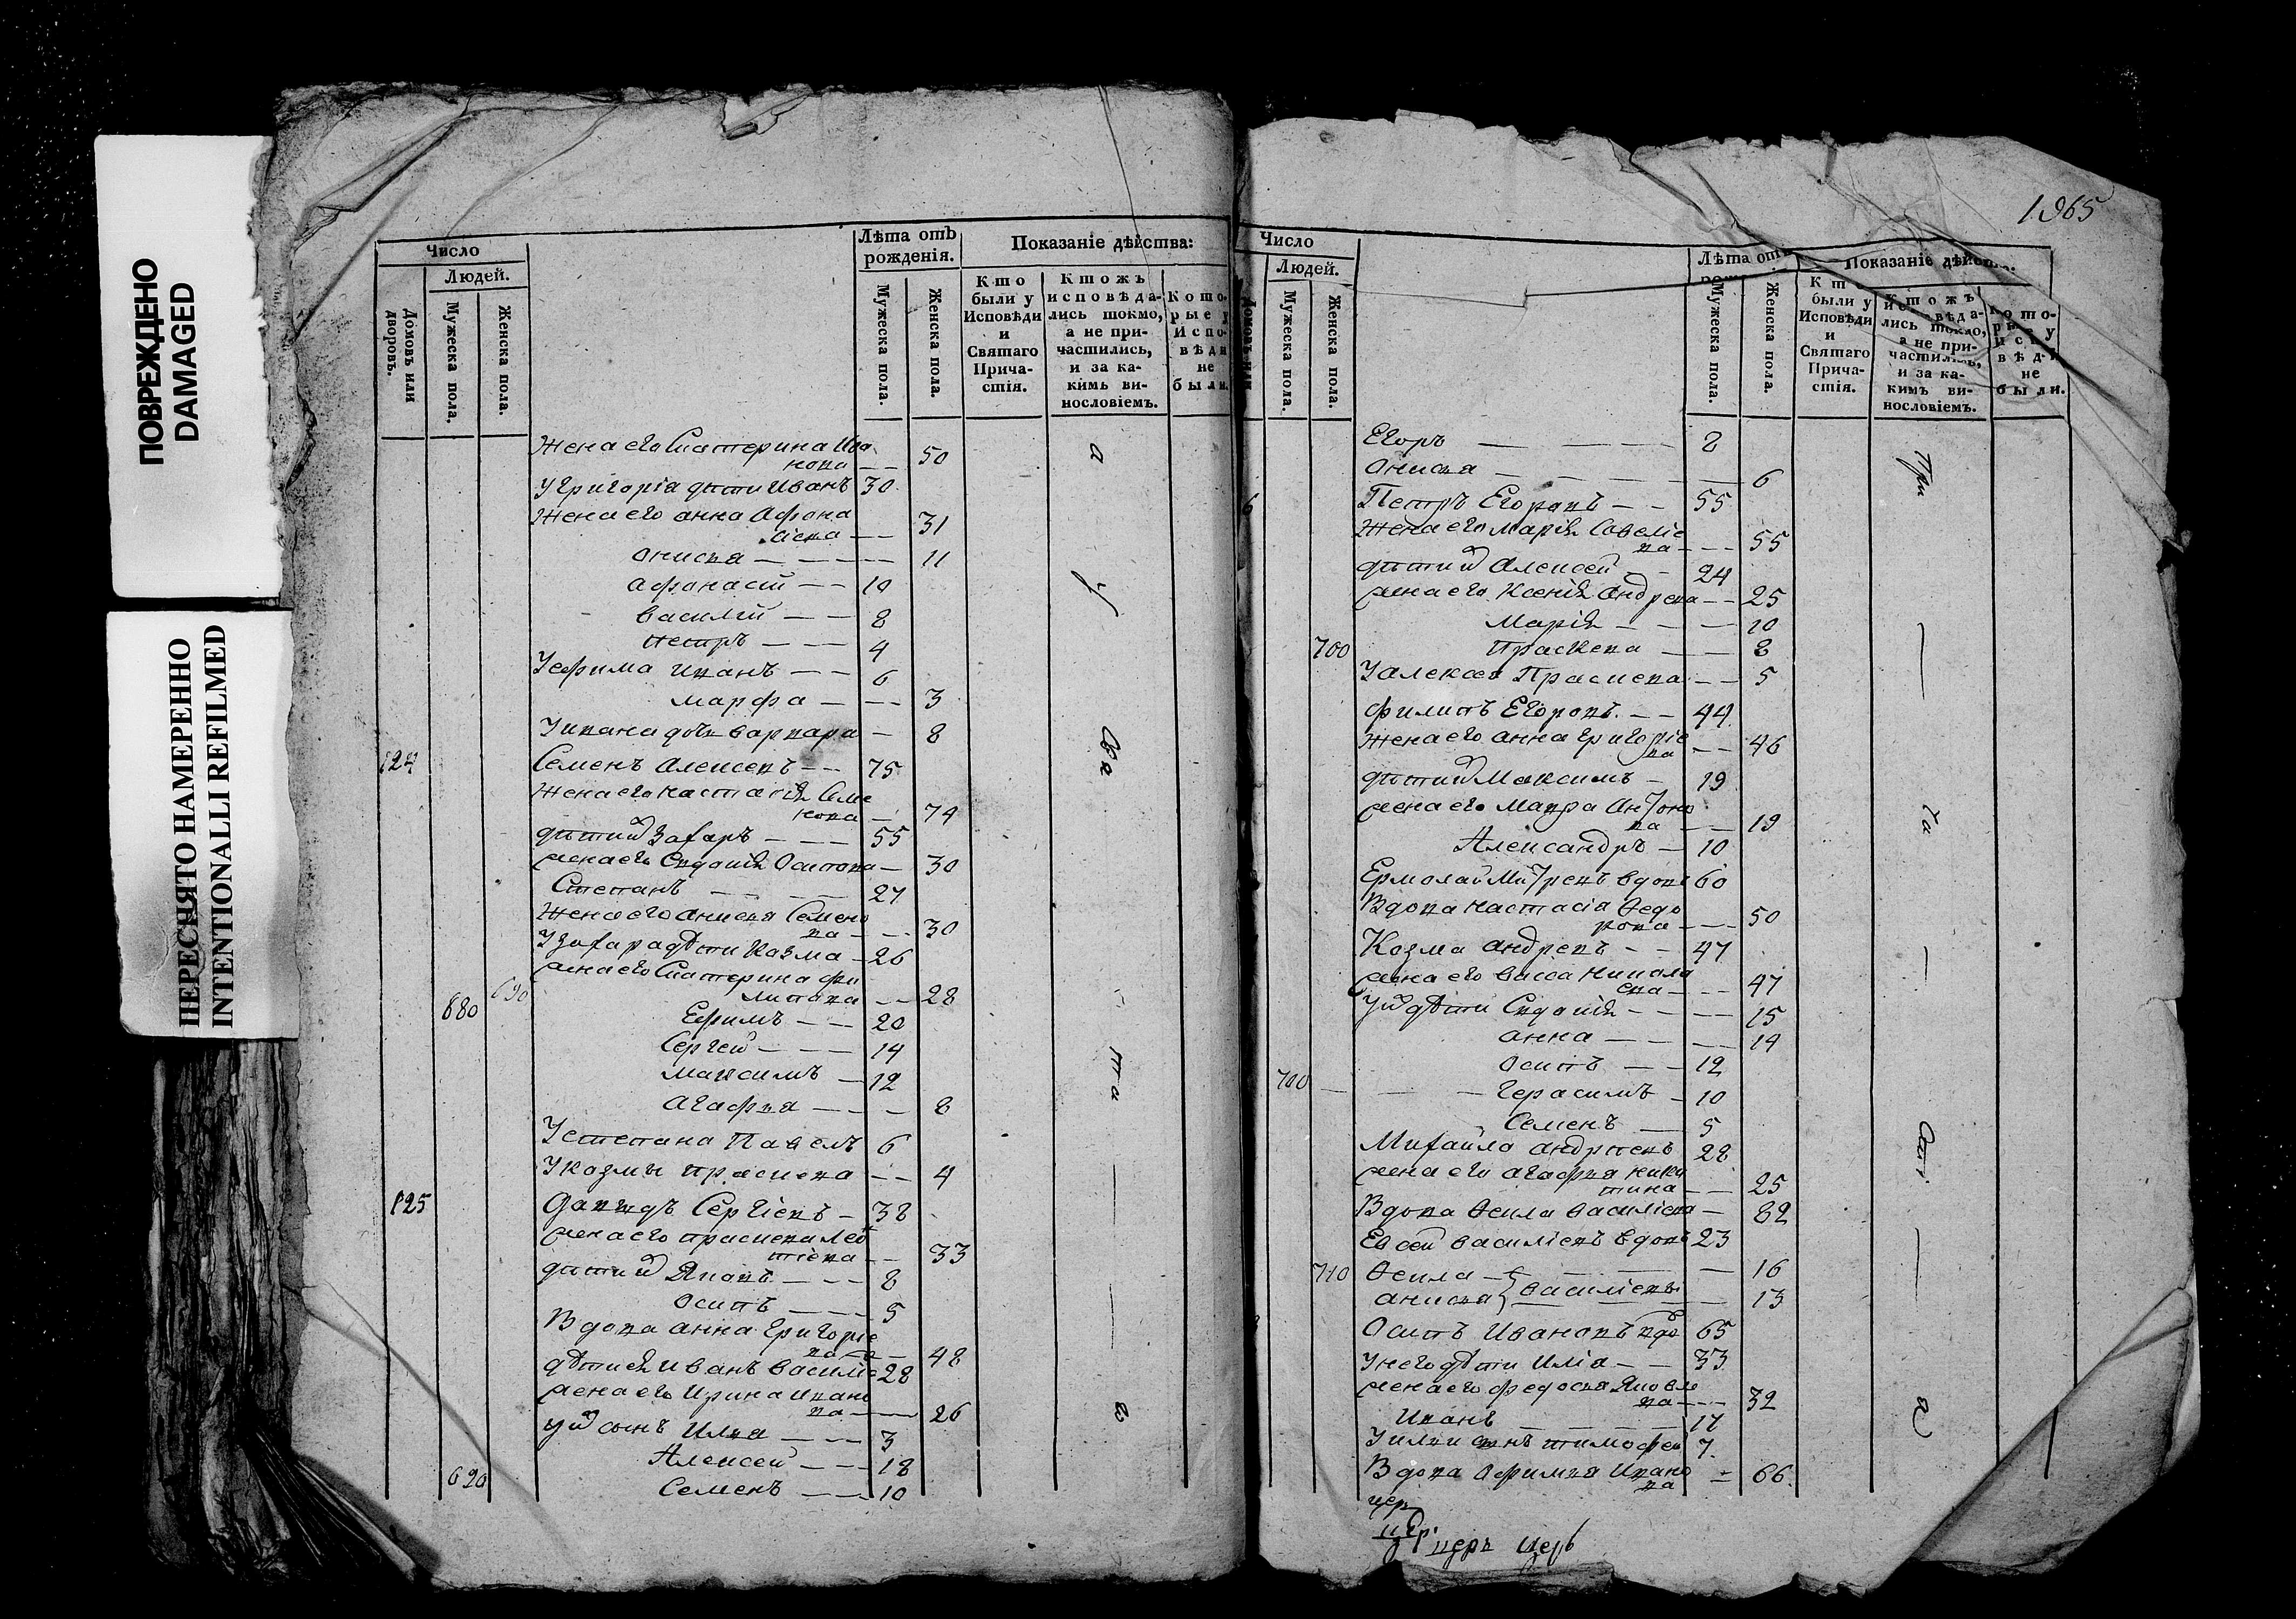 ПОВРЕЖДЕНО
DAMAGED
ПЕРЕСНЯТО НАМЕРЕННО
INTENTIONALLI REFILMED
Число
Людей.
Домовъ или дворовъ.
Мужеска пола.
Женска пола.
Лѣта отъ рожденія.
Мужеска пола.
Женска пола.
Показаніе дѣйства:
Кто были у Исповѣди и Святаго Прича-стія.
Ктожъ исповѣда-лись токмо, а не при-частились, и за ка-кимъ ви-нословіемъ.
Кото-рые у Испо-вѣди не были.
Жена его Екатерина Ива
нова — — 50
У Григорія дѣти Иванъ 30
Жена его анна Афона
сіева — — 31
Анисья — — — — 11
Афонасій — — 10
Василій — — 8
Петръ — — — 4
У ефима Иванъ — — 6
Марфа — — — 3
У ивана дочь варвара — 8
124 Семенъ Алексеевъ — — 75
Жена его Настасія Семе
нова — 74
дѣти ий Захаръ — — — 55
жена его Евдокія Осипова — 30
Степанъ — — 27
Жена его Анисья Семено
ва — — 30
У Захара дѣти Козма — 26
жена его Екатерина фи
690 липова — — 28
680 Ефимъ — — 20
Сергей — — — 14
Максимъ — 12
Агафья — — — 8
У степана Павелъ 6
У козмы прасковья — — 4
125 Давыдъ Сергіевъ — 38
жена его прасковья Лео
тіева — — 33
дѣти ий Яковъ — — — 8
Осипъ — — — 5
Вдова анна Григоріе
ва — 48
дѣти ея Иванъ Василіе 28
жена его Ирина Ивано
ва — — 26
У ий сынъ Илья — — — 3
Алексей — — — 18
620 Семенъ — — — 10
1965
Число
Людей.
Мужеска пола.
Женска пола.
Лѣта отъ
Мужеска пола.
Женска пола.
Показаніе дѣйства:
были у Исповѣди и Святаго Прича-стія.
лись токмо, а не при-частились, и за ка-кимъ ви-нословіемъ.
не были.
Егоръ — — — — 8
Анисья — — — — 6
Петръ Егоровъ — — 55
Жена его Марія Савеліе
ва — — — 55
дѣти ий Алексей — — 24
жена его Ксенія Андреева — — 25
Марія — — — — 10
700 Прасковья — — 8
У алексея Прасковья — — 5
филипъ Егоровъ — — 44
Жена его анна Григоріе
ва — — 46
дѣти ий Максимъ — 19
жена его Мавра Антоно
ва — — 19
Александръ — 10
Ермолай Митревъ вдовъ 60
Вдова Настасіа Ѳедо
рова — — — 50
Козма Андревъ — — 47
жена его васса Никола
ева — — — 47
У ий дѣти Евдокія — — — 15
Анна — — — — 14
Осипъ — — 12
700 — — — Герасимъ — 10
Семенъ — 5
Михайла Андреевъ 28
жена его Агафья ники
тина — — 25
Вдова Ѳекла Василіева — 82
Евсей Василіевъ вдовъ 23
710 Ѳекла — — — — 16
Анисья } Василіевы — — 13
Осипъ Ивановъ вдо 65
У него дѣти Илія — — 33
жена его федосья Яковле
ва — — — 32
Иванъ — — — — 17
У ильи сынъ тимофей 7
Вдова Афимья Ивано
ва — 66
цер
церъ